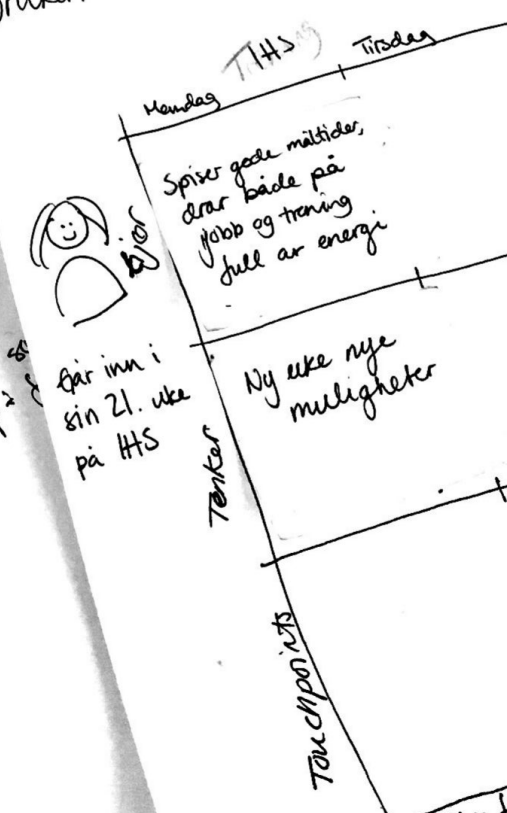 IHS
Mandag
Tirsdag
Spiser gode måltider,
drar både på
jobb og trening
full av energi
Gjør
Går inn i
sin 21. uke
på IHS
Tenker
Ny uke nye
muligheter
Touchpoints